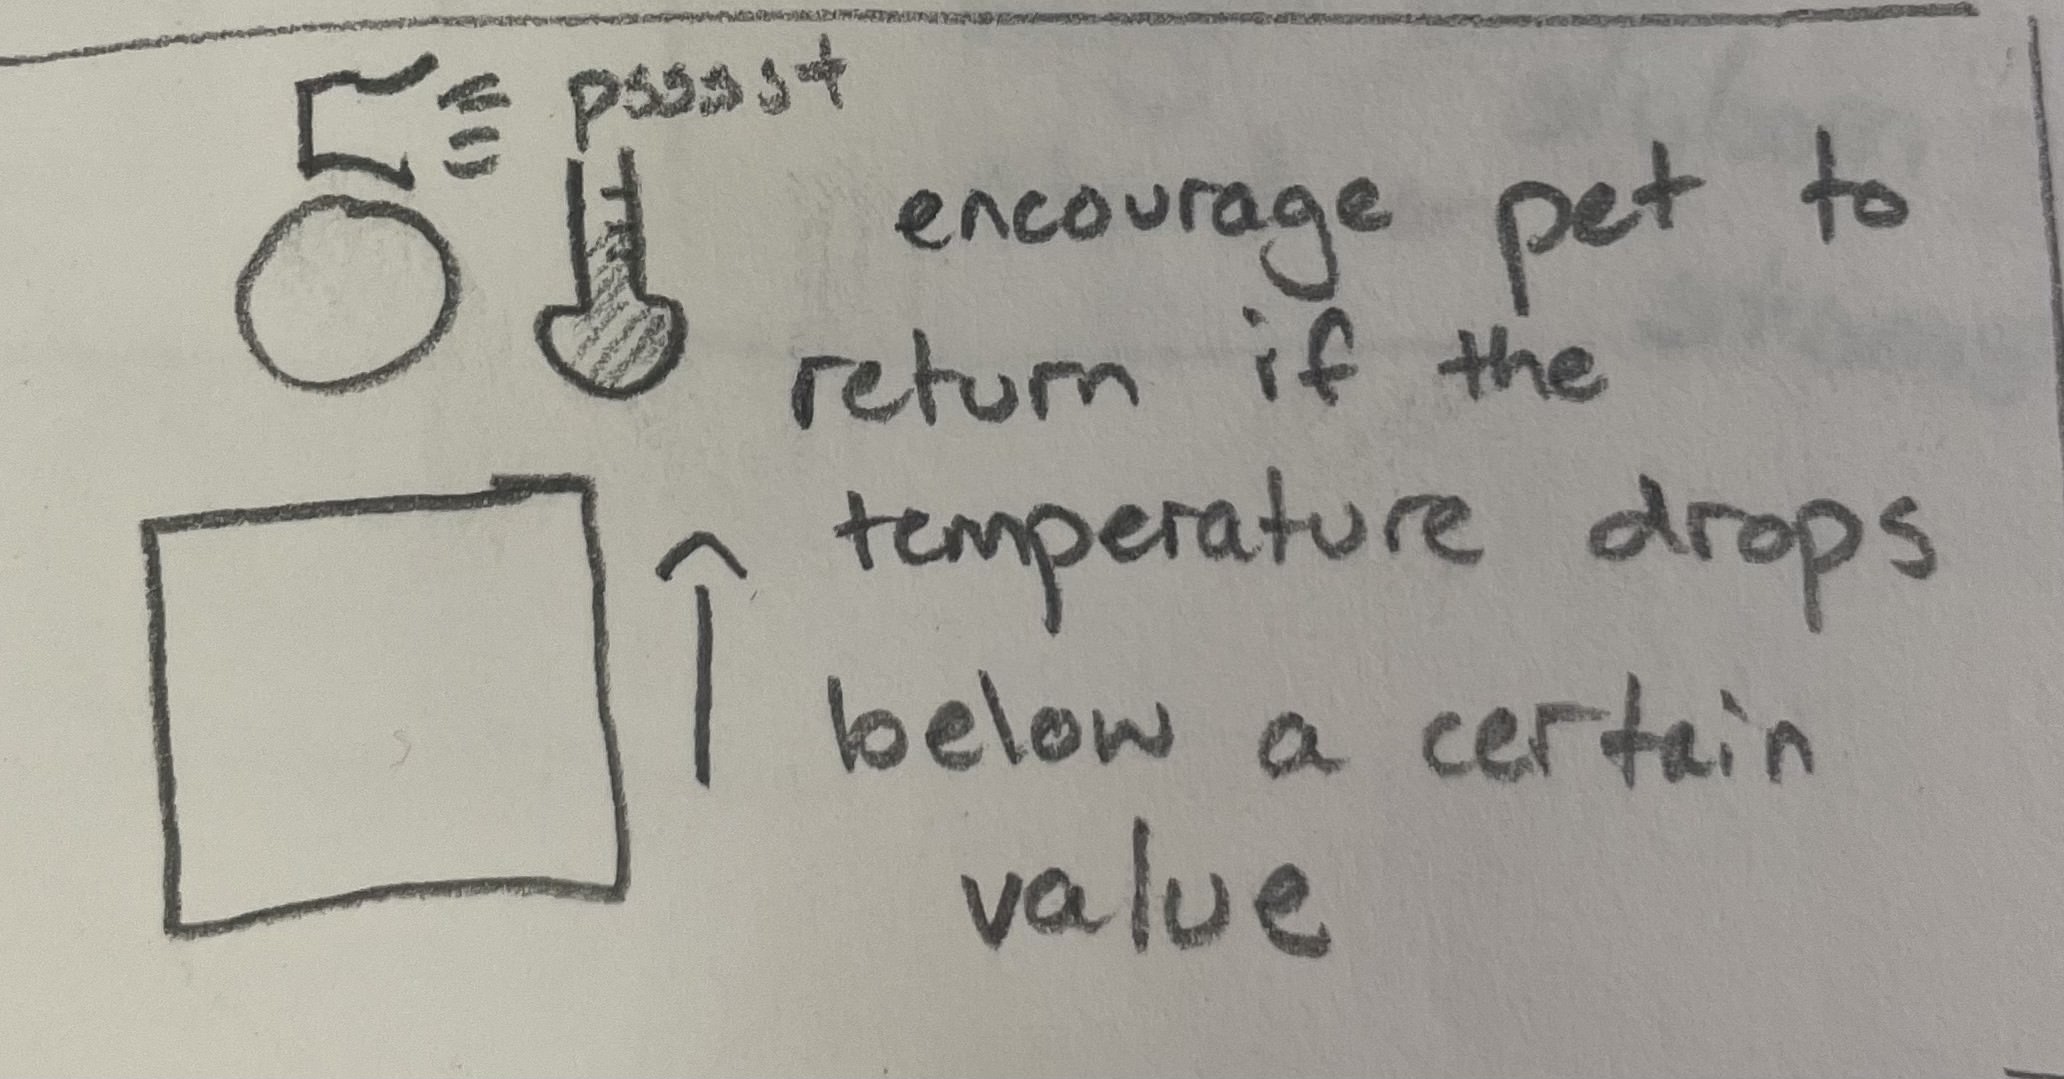 psssst
encourage pet to
return if the
temperature drops
below a certain
value